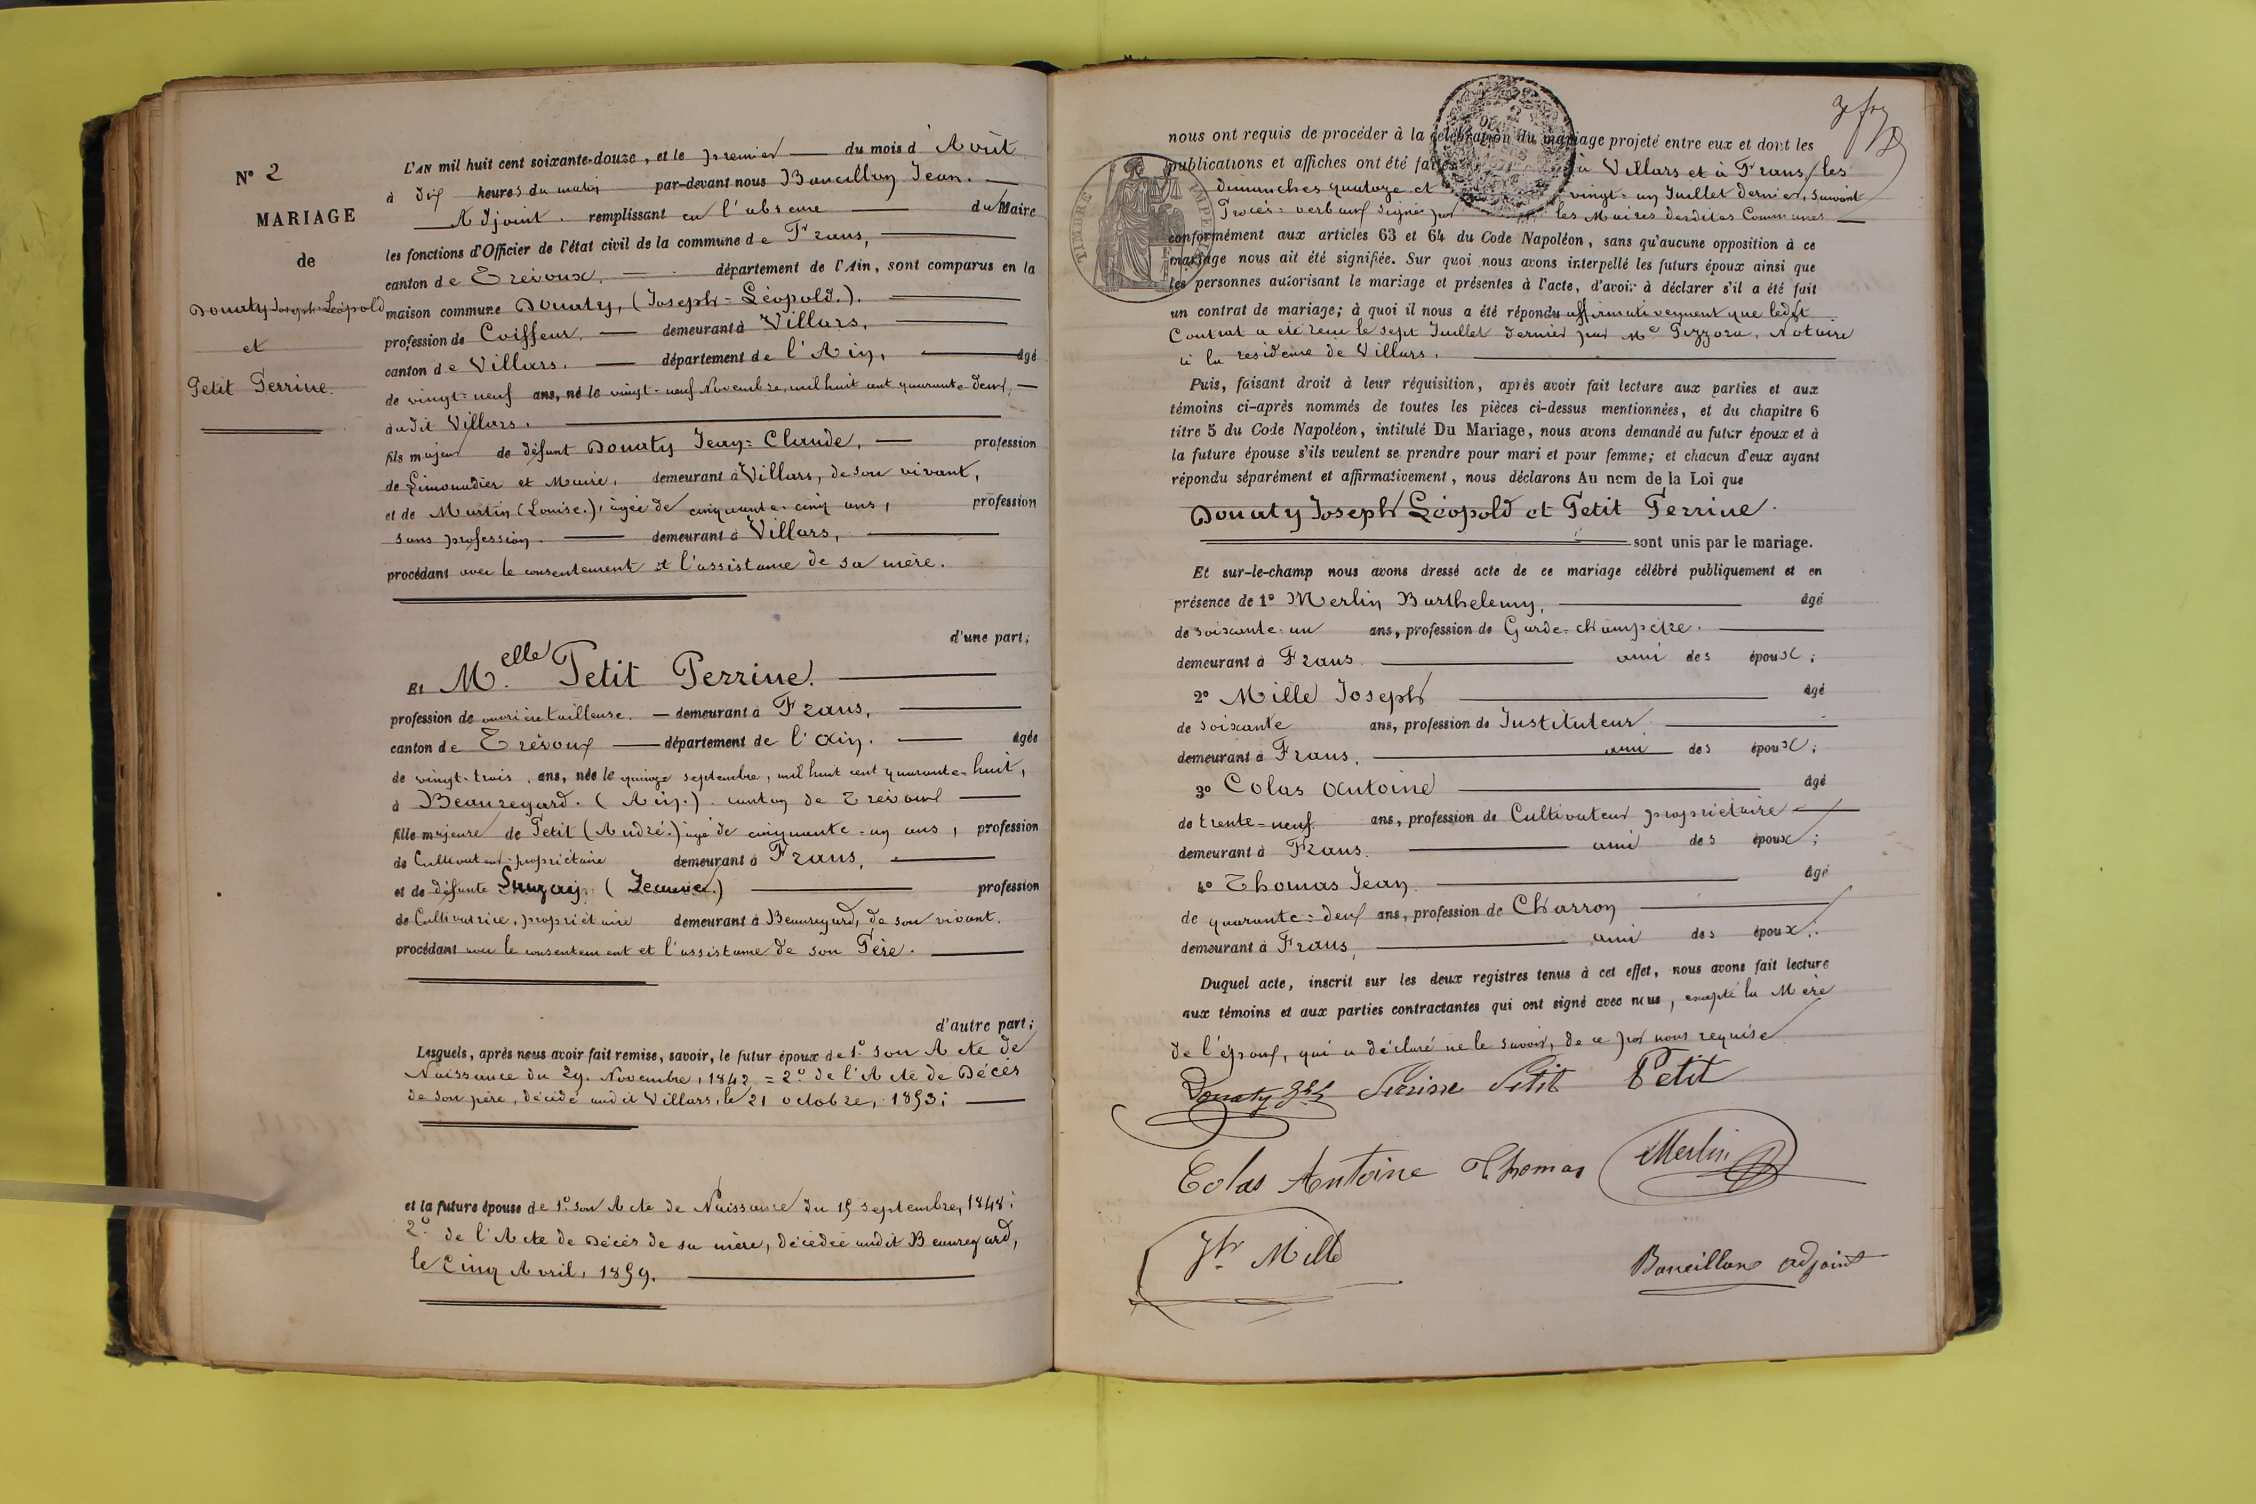 N° 2
MARIAGE
de
Donaty Joseph-Léopold
et
Petit Perrine.
L'AN mil huit cent soixante-douze, et le premier du mois d'Août
à dix heures du matin par-devant nous Bancillon Jean.
Adjoint. remplissant en l'absence du Maire
les fonctions d'Officier de l'état civil de la commune de Frans,
canton de Trévoux, département de l'Ain, sont comparus en la
maison commune Donaty, (Joseph-Léopold.).
profession de Coiffeur, demeurant à Villars,
canton de Villars. département de l'Ain, âgé
de vingt-neuf ans, né le vingt-neuf Novembre, mil huit cent quarante-deux,
audit Villars.
fils majeur de défunt Donaty Jean-Claude, profession
de Limonadier et Maire, demeurant à Villars, de son vivant,
et de Martin (Louise.), âgée de cinquante-cinq ans, profession
sans profession. demeurant à Villars,
procédant avec le consentement et l'assistance de sa mère.
d'une part;
Et M.elle Petit Perrine.
profession de ouvrière tailleuse. demeurant à Frans,
canton de Trévoux département de l'Ain. âgée
de vingt-trois ans, née le quinze septembre, mil huit cent quarante-huit,
à Beauregard. (Ain.) canton de Trévoux
fille majeure de Petit (André.) âgé de cinquante-un ans, profession
de Cultivateur-propriétaire demeurant à Frans,
et de défunte (Jeanne.) profession
de Cultivatrice, propriétaire demeurant à Beauregard, de son vivant.
procédant avec le consentement et l'assistance de son Père.
d'autre part;
Lesquels, après nous avoir fait remise, savoir, le futur époux de 1.° son Acte de
Naissance du 29. Novembre, 1842 = 2.° de l'Acte de Décès
de son père, décédé audit Villars, le 21 octobre, 1853;
et la future épouse de 1.° son Acte de Naissance du 15 septembre, 1848;
2.° de l'Acte de Décès de sa mère, décédée audit Beauregard,
le Cinq Avril, 1859.
nous ont requis de procéder à la célébration du mariage projeté entre eux et dont les
publications et affiches ont été faites à Villars et à Frans, les
dimanches quatorze et vingt-un Juillet dernier, suivant
Procès-verbaux signés par les Maires desdites Communes
conformément aux articles 63 et 64 du Code Napoléon, sans qu'aucune opposition à ce
mariage nous ait été signifiée. Sur quoi nous avons interpellé les futurs époux ainsi que
les personnes autorisant le mariage et présentes à l'acte, d'avoir à déclarer s'il a été fait
un contrat de mariage; à quoi il nous a été répondu affirmativement que ledit
Contrat a été reçu le sept Juillet dernier par M.e Pizzera, Notaire
à la residence de Villars.
Puis, faisant droit à leur réquisition, après avoir fait lecture aux parties et aux
témoins ci-après nommés de toutes les pièces ci-dessus mentionnées, et du chapitre 6
titre 5 du Code Napoléon, intitulé Du Mariage, nous avons demandé au futur époux et à
la future épouse s'ils veulent se prendre pour mari et pour femme; et chacun d'eux ayant
répondu séparément et affirmativement, nous déclarons Au nom de la Loi que
Donaty Joseph Léopold et Petit Perrine.
sont unis par le mariage.
Et sur-le-champ nous avons dressé acte de ce mariage célébré publiquement et en
présence de 1° Merlin Barthelemy, âgé
de soixante-un ans, profession de Garde-champêtre.
demeurant à Frans. ami des époux;
2° Mille Joseph âgé
de soixante ans, profession de Instituteur.
demeurant à Frans. ami des époux;
3° Colas Antoine âgé
de trente-neuf ans, profession de Cultivateur propriétaire
demeurant à Frans. ami des époux;
4° Thomas Jean âgé
de quarante-deux ans, profession de Charron
demeurant à Frans, ami des époux.
Duquel acte, inscrit sur les deux registres tenus à cet effet, nous avons fait lecture
aux témoins et aux parties contractantes qui ont signé avec nous, excepté la Mère
de l'époux, qui a déclaré ne le savoir, de ce par nous requise
Donaty Perrine Petit Petit
Colas Antoine Thomas Merlin
Jh Mille
Bancillon adjoint
TIMBRE